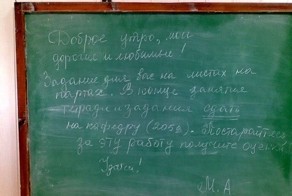 Доброе утро, мои
дорогие и любимые!
Задание для вас на листах на
партах. В конце занятия
тетради и задания сдать
на кафедру (205а). Постарайтесь
за эту работу получить оценки.
Удачи!
М. А